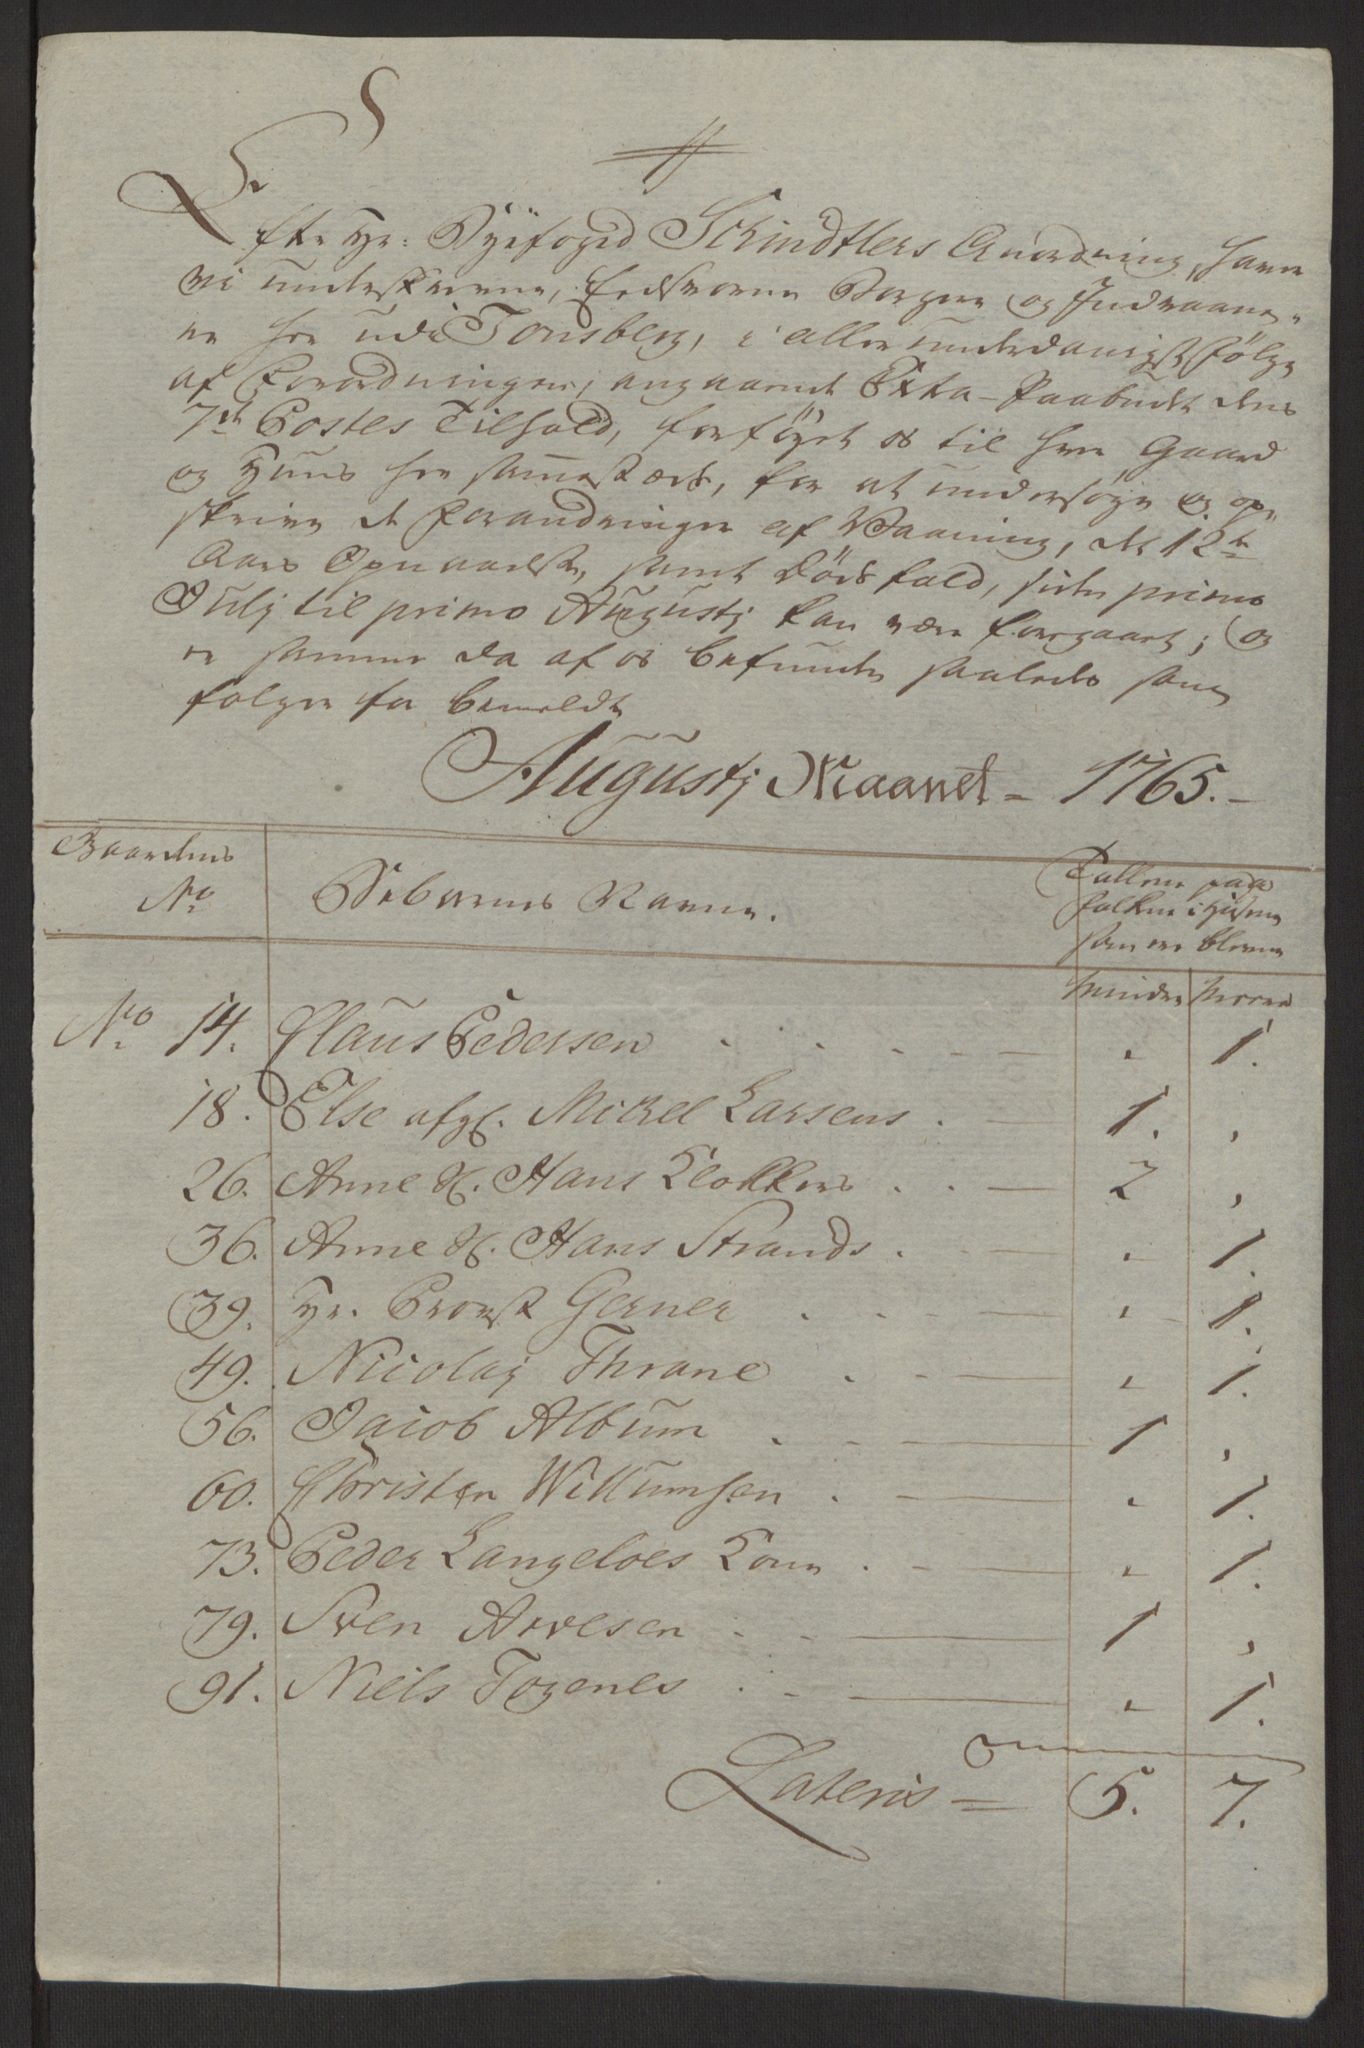 Efter Hr: Byefoged Schindtlers Anordning, have
vi underskrevne, Eedsvorne Borgere og Indvaane-
re her udi Tonsberg, i allerunderdanigst Følge
af Forordningen, angaaende Extra-Paabudet dens
7de Postes Tilhold, forføyet os til hver Gaard
og Huus her sammestæds, for at undersøge og op-
skrive de Forandringer af Vaaning, de 12te
Aars Opnaaelse, samt Dødsfald, siden primo
Julj til primo Augustj kan være foregaaet; og
er samme da af os befunden saaledes som
følger for bemeldte
Augustj Maanet - 1765.-
Gaardens
No
Beboernes Navne.
Tallene paa de
Folkene i Husene
som ere blevne
Minder Meere
No 14. Claus Pedersen . . . . - - " 1.
18. Else afg. Michel Larsens . - 1. "
26. Anne S. Hans Klokkers . . - 2 "
36. Anne S. Hans Strands . - " 1.
39. Hr. Provst Gerner . . - " 1.
49. Nicolaj Thrane . . - " 1.
56. Jacob Album . . - 1 "
60. Christen Willumsen . - " 1.
73. Peder Langeloes Kone . - " 1.
79. Sven Arvesen . . - 1 "
91. Niels Togenes . . - " 1.
Lateris = 5. 7.